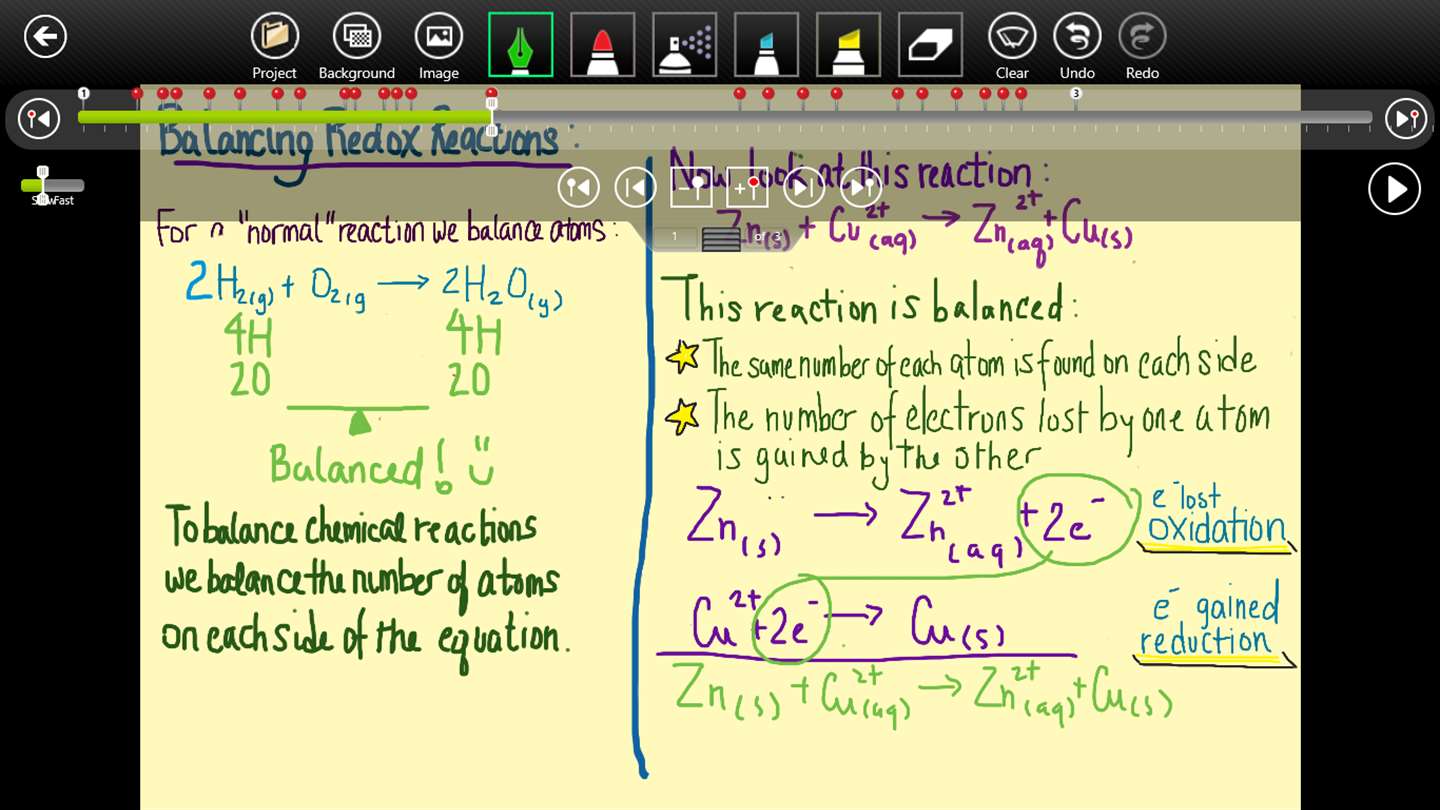 Project
Background
Image
Clear
Undo
Redo
1
3
Fast
Balancing Redox Reactions :
For a "normal" reaction we balance atoms :
2H2(g) + O2(g → 2H2O(g)
4H 4H
2O 2O
Balanced!
To balance chemical reactions
we balance the number of atoms
on each side of the equation.
Now look at this reaction :
1
3
Zn(s) + Cu2+(aq) → Zn2+(aq) + Cu(s)
This reaction is balanced :
The same number of each atom is found on each side
The number of electrons lost by one atom
is gained by the other
Zn(s) → Zn2+(aq) + 2e-
e- lost
oxidation
Cu2+ + 2e- → Cu(s)
e- gained
reduction
Zn(s) + Cu2+(aq) → Zn2+(aq) + Cu(s)